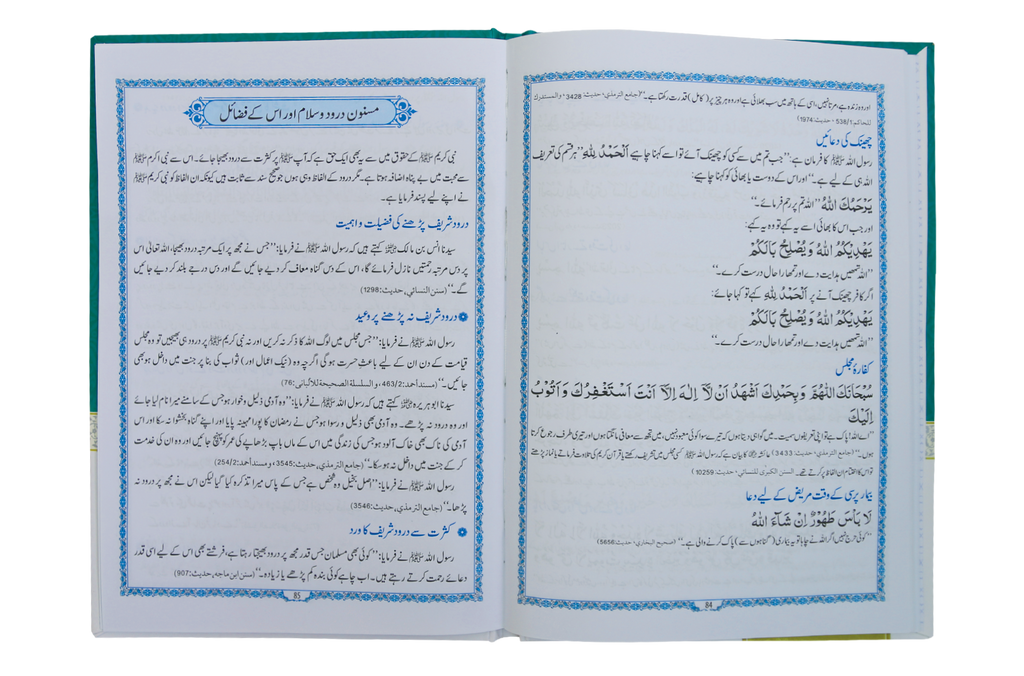 اور وہ زندہ ہے، مرتا نہیں، اسی کے ہاتھ میں سب بھلائی ہے اور وہ ہر چیز پر (کامل) قدرت رکھتا ہے۔" (جامع الترمذي، حدیث: 3428، والمستدرك
للحاكم: 538/1، حدیث: 1974)
چھینک کی دعائیں
رسول اللہ ﷺ کا فرمان ہے: "جب تم میں سے کسی کو چھینک آئے تو اسے کہنا چاہیے اَلْحَمْدُ لِلّٰهِ "ہر قسم کی تعریف
اللہ ہی کے لیے ہے۔" اور اس کے دوست یا بھائی کو کہنا چاہیے:
يَرْحَمُكَ اللّٰهُ "اللہ تم پر رحم فرمائے۔"
اور جب اس کا بھائی اسے یہ کہے تو وہ یہ کہے:
يَهْدِيْكُمُ اللّٰهُ وَيُصْلِحُ بَالَكُمْ
"اللہ تمھیں ہدایت دے اور تمھارا حال درست کرے۔"
اگر کافر چھینک آنے پر اَلْحَمْدُ لِلّٰهِ کہے تو کہا جائے:
يَهْدِيْكُمُ اللّٰهُ وَيُصْلِحُ بَالَكُمْ
"اللہ تمھیں ہدایت دے اور تمھارا حال درست کرے۔"
کفارۂ مجلس
سُبْحَانَكَ اللّٰهُمَّ وَبِحَمْدِكَ اَشْهَدُ اَنْ لَّاۤ اِلٰهَ اِلَّاۤ اَنْتَ اَسْتَغْفِرُكَ وَاَتُوْبُ
اِلَيْكَ
"اے اللہ! تو پاک ہے تو اپنی تعریفوں سمیت۔ میں گواہی دیتا ہوں کہ تیرے سوا کوئی معبود نہیں، میں تجھ سے معافی مانگتا ہوں اور تیری طرف رجوع کرتا
ہوں۔" (جامع الترمذي، حدیث: 3433) عائشہ کا بیان ہے کہ رسول اللہ ﷺ کسی مجلس میں تشریف رکھتے یا قرآن کریم کی تلاوت فرماتے یا نماز پڑھتے
تو اس کا اختتام ان الفاظ پر کرتے تھے۔ السنن الكبرى للنسائي، حدیث: 10259)
بیمار پرسی کے وقت مریض کے لیے دعا
لَا بَأْسَ طَهُوْرٌ اِنْ شَآءَ اللّٰهُ
"کوئی حرج نہیں اگر اللہ نے چاہا تو یہ بیماری (گناہوں سے) پاک کرنے والی ہے۔" (صحيح البخاري، حدیث: 5656)
84
مسنون درود و سلام اور اس کے فضائل
نبی کریم ﷺ کے حقوق میں سے یہ بھی ایک حق ہے کہ آپ ﷺ پر کثرت سے درود بھیجا جائے۔ اس سے نبی اکرم ﷺ
سے محبت میں بے پناہ اضافہ ہوتا ہے۔ مگر درود کے الفاظ وہی ہوں جو صحیح سند سے ثابت ہیں کیونکہ ان الفاظ کو نبی کریم ﷺ
نے اپنے لیے پسند فرمایا ہے۔
درود شریف پڑھنے کی فضیلت و اہمیت
سیدنا انس بن مالک کہتے ہیں کہ رسول اللہ ﷺ نے فرمایا: "جس نے مجھ پر ایک مرتبہ درود بھیجا، اللہ تعالیٰ اس
پر دس مرتبہ رحمتیں نازل فرمائے گا، اس کے دس گناہ معاف کر دیے جائیں گے اور دس درجے بلند کر دیے جائیں
گے۔" (سنن النسائي، حدیث: 1298)
درود شریف نہ پڑھنے پر وعید
رسول اللہ ﷺ نے فرمایا: "جس مجلس میں لوگ اللہ کا ذکر نہ کریں اور نہ نبی کریم ﷺ پر درود ہی بھیجیں تو وہ مجلس
قیامت کے دن ان کے لیے باعثِ حسرت ہو گی اگرچہ وہ (نیک اعمال اور) ثواب کی بنا پر جنت میں داخل ہو بھی
جائیں۔" (مسند أحمد: 463/2، والسلسلة الصحيحة للألباني: 76)
سیدنا ابو ہریرہ کہتے ہیں کہ رسول اللہ ﷺ نے فرمایا: "وہ آدمی ذلیل و خوار ہو جس کے سامنے میرا نام لیا جائے
اور وہ درود نہ پڑھے۔ وہ آدمی بھی ذلیل و رسوا ہو جس نے رمضان کا پورا مہینہ پایا اور اپنے گناہ بخشوا نہ سکا اور اس
آدمی کی ناک بھی خاک آلود ہو جس کی زندگی میں اس کے ماں باپ بڑھاپے کی عمر کو پہنچ جائیں اور وہ ان کی خدمت
کر کے جنت میں داخل نہ ہو سکا۔" (جامع الترمذي، حدیث: 3545، ومسند أحمد: 254/2)
رسول اللہ ﷺ نے فرمایا: "اصل بخیل وہ شخص ہے جس کے پاس میرا تذکرہ کیا گیا لیکن اس نے مجھ پر درود نہ
پڑھا۔" (جامع الترمذي، حدیث: 3546)
کثرت سے درود شریف کا ورد
رسول اللہ ﷺ نے فرمایا: "کوئی بھی مسلمان جس قدر مجھ پر درود بھیجتا رہتا ہے، فرشتے بھی اس کے لیے اسی قدر
دعائے رحمت کرتے رہتے ہیں۔ اب چاہے کوئی بندہ کم پڑھے یا زیادہ۔" (سنن ابن ماجه، حدیث: 907)
85